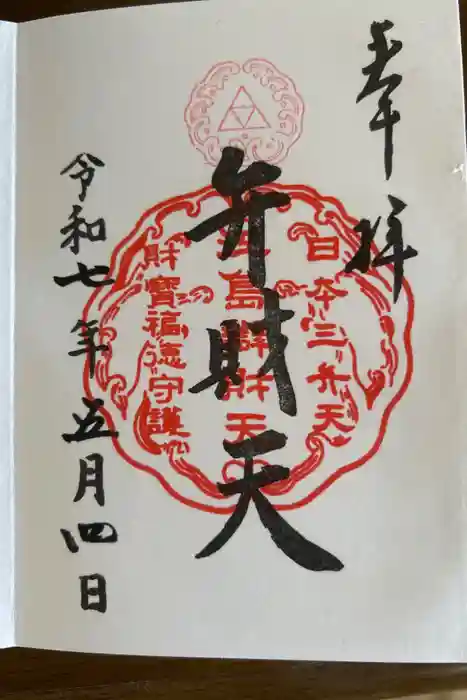 奉拝
日本三弁天
江島辨財天
財寳福徳守護
弁財天
令和七年五月四日